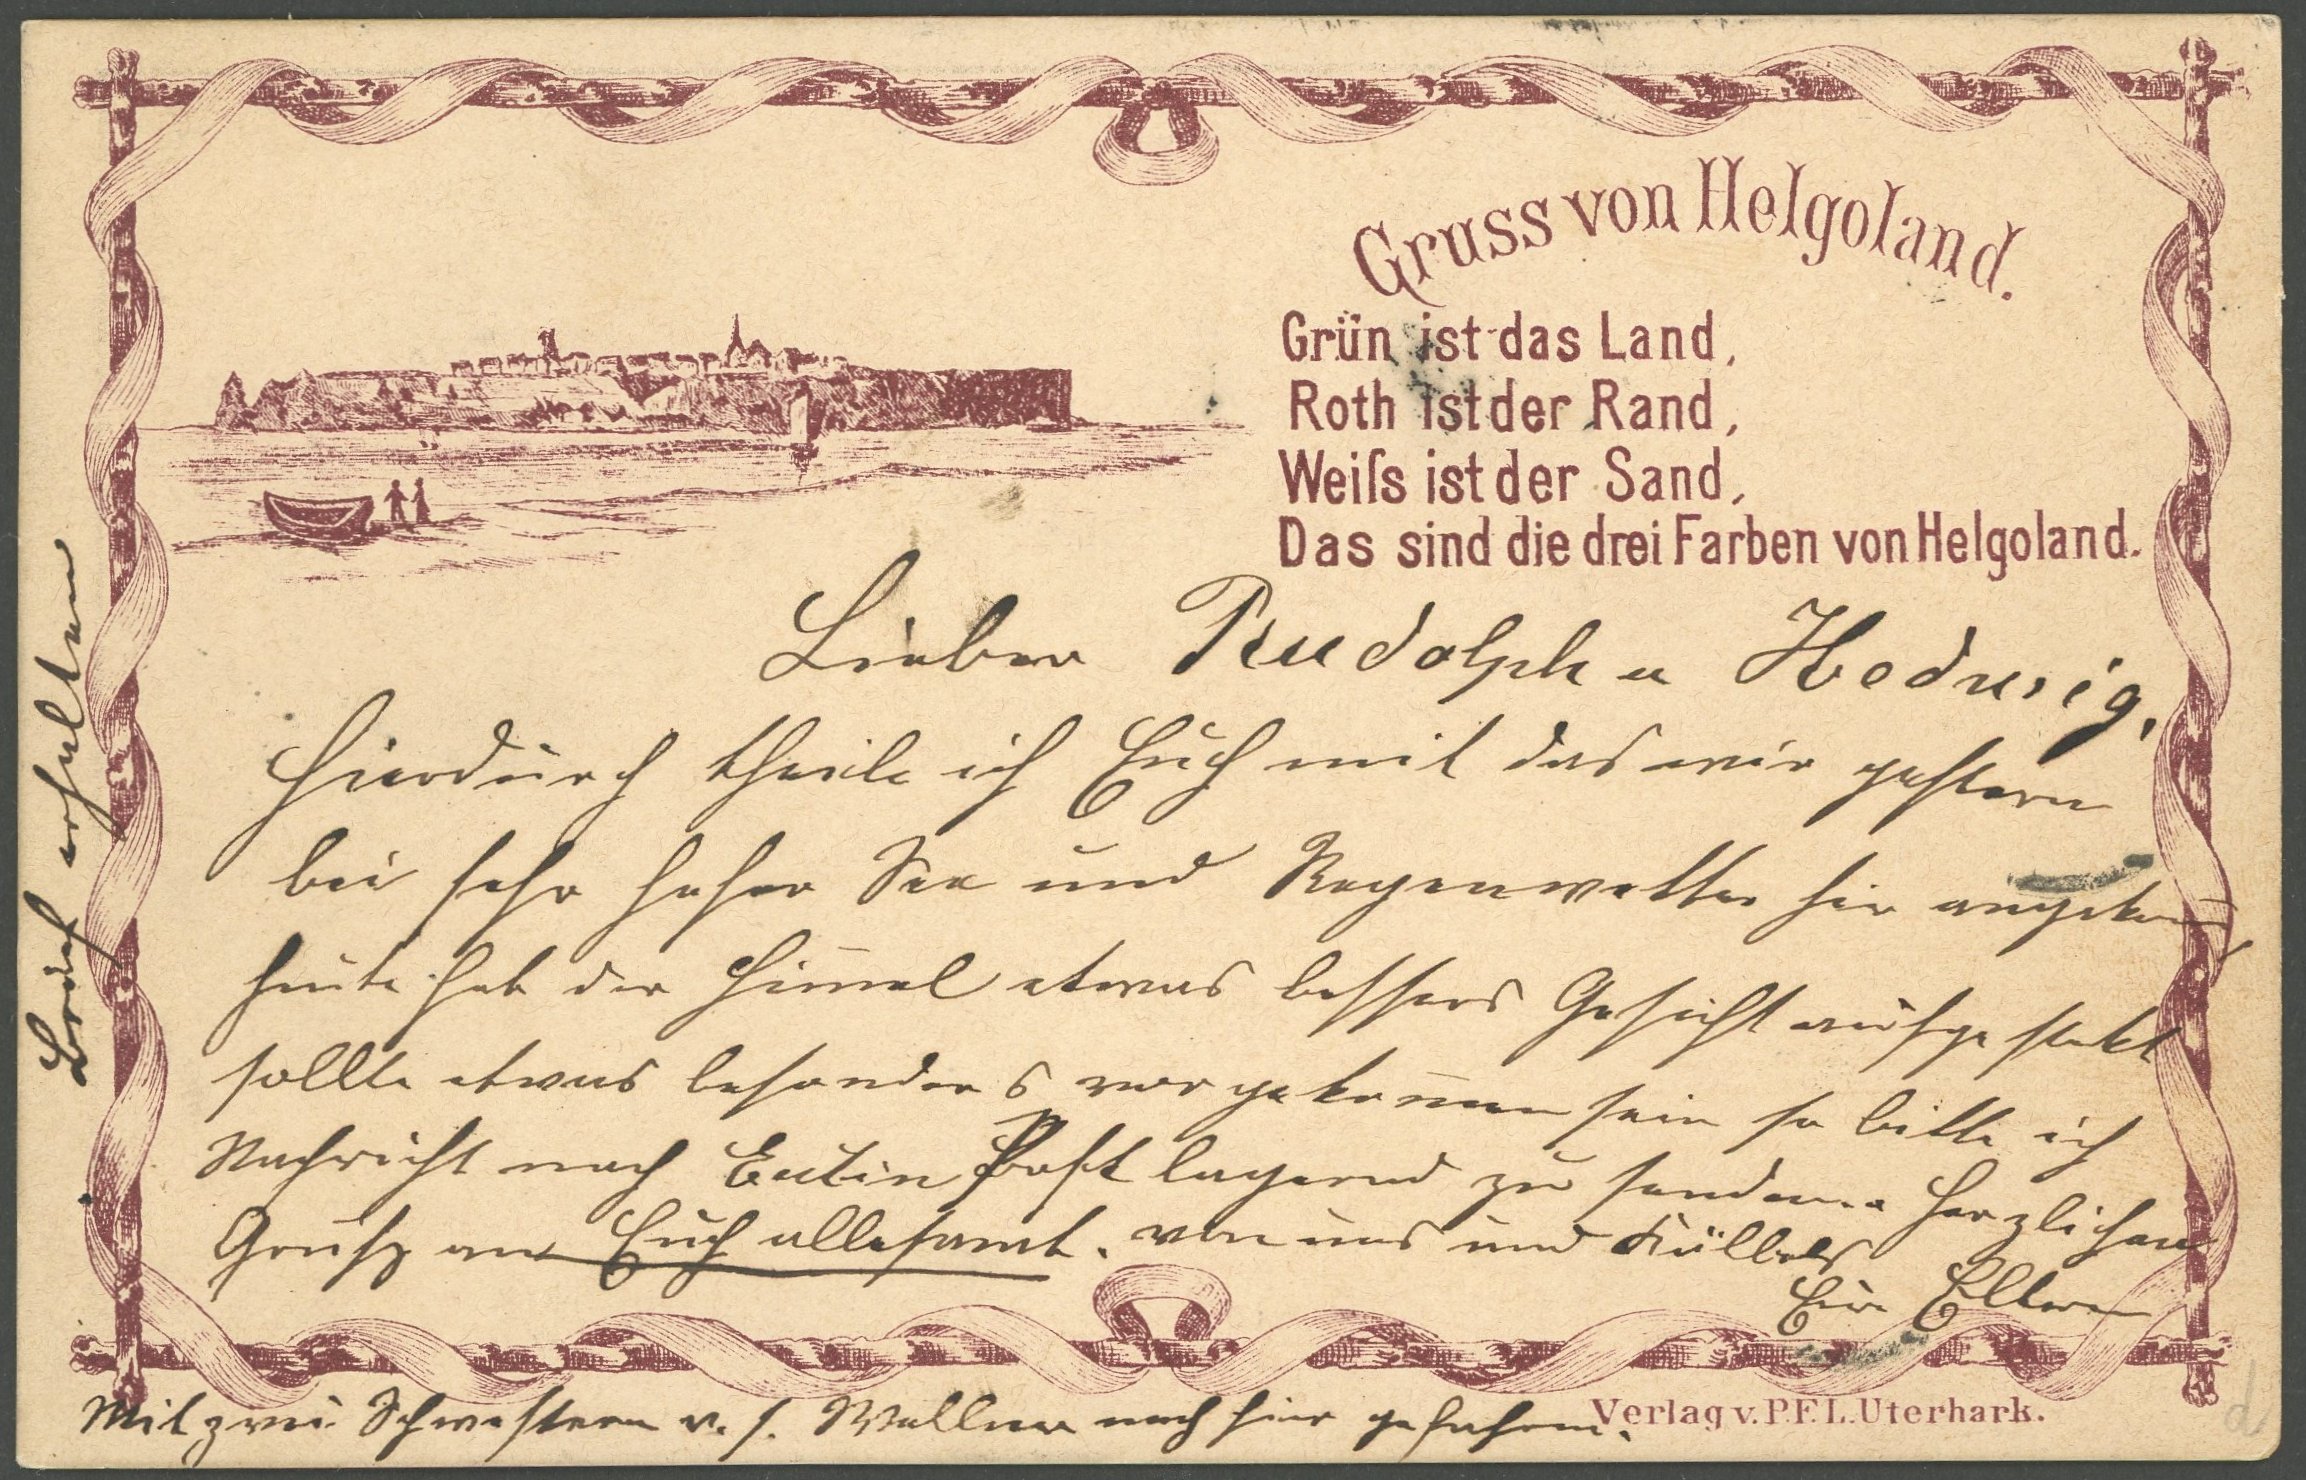 Gruss von Helgoland.
Grün ist das Land,
Roth ist der Rand,
Weiſs ist der Sand,
Das sind die drei Farben von Helgoland.
Lieber Rudolph u Hedwig,
hierdurch theile ich Euch mit das wir gestern
bei sehr hoher See und Regenwetter hir angekom̄
heute hat der Him̄el etwas bessers Gesicht aufgestekt
sollte etwas besonders vorgekom̄en sein so bitte ich
Nachricht nach Eutin Postlagernd zu senden. Herzlichen
Gruß an Euch allesamt. von uns und
Eure Eltern
Mit zwei Schwestern v. H. Wallner nach hier gefahren.
Verlag v. P.F.L. Uterhark.
Brief erhalten